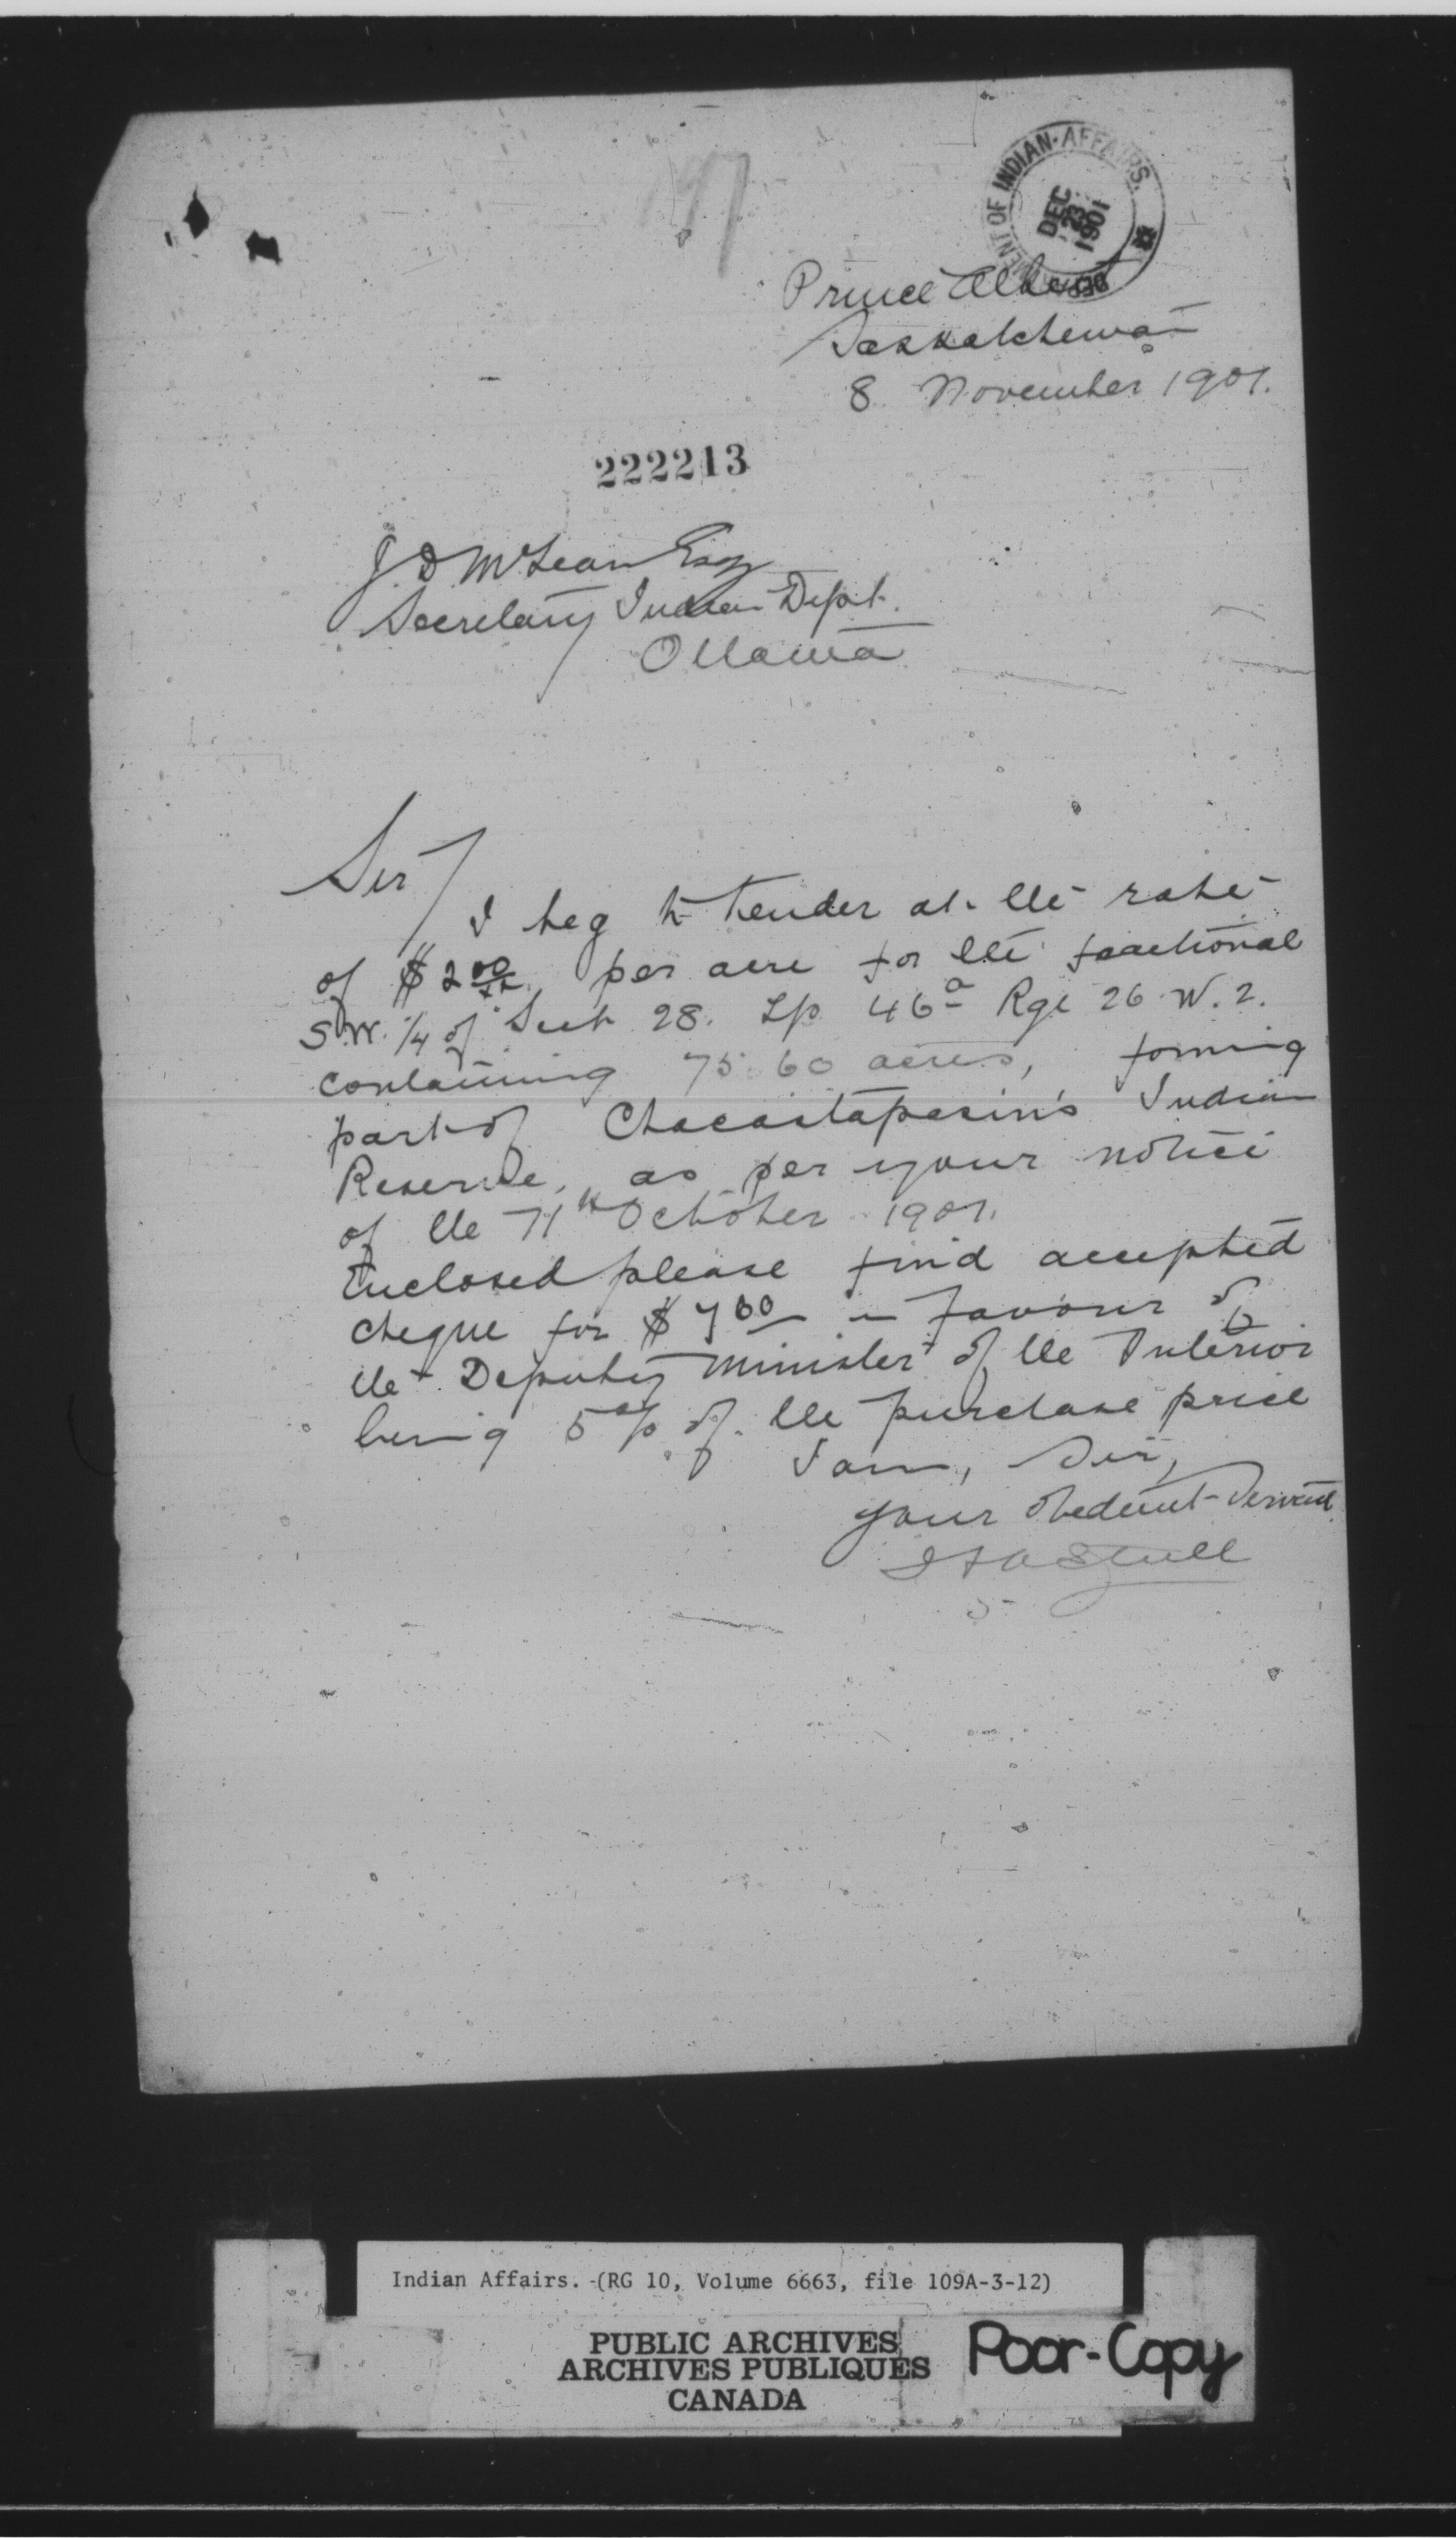 197
DEPARTMENT OF INDIAN AFFAIRS.
DEC
23
1901
Prince Albert
Saskatchewan
8 November 1901.
222213
J. D McLean Esq
Secretary Indian Dept.
Ottawa
Sir/
I beg to tender at the rate
of $2 00/xx per acre for the fractional
S.W. 1/4 of Sect 28. Tp 46a Rge 26 W. 2.
containing 75.60 acres, forming
part of Chacastapasin's Indian
Reserve, as per your notice
of the 71th October 1901.
Enclosed please find accepted
cheque for $7 60 in favour of
the Deputy Minister of the Interior
being 5% of the purchase price
I am, Sir,
your obedient Servant
Indian Affairs. (RG 10, Volume 6663, file 109A-3-12)
PUBLIC ARCHIVES
ARCHIVES PUBLIQUES
CANADA
Poor-Copy